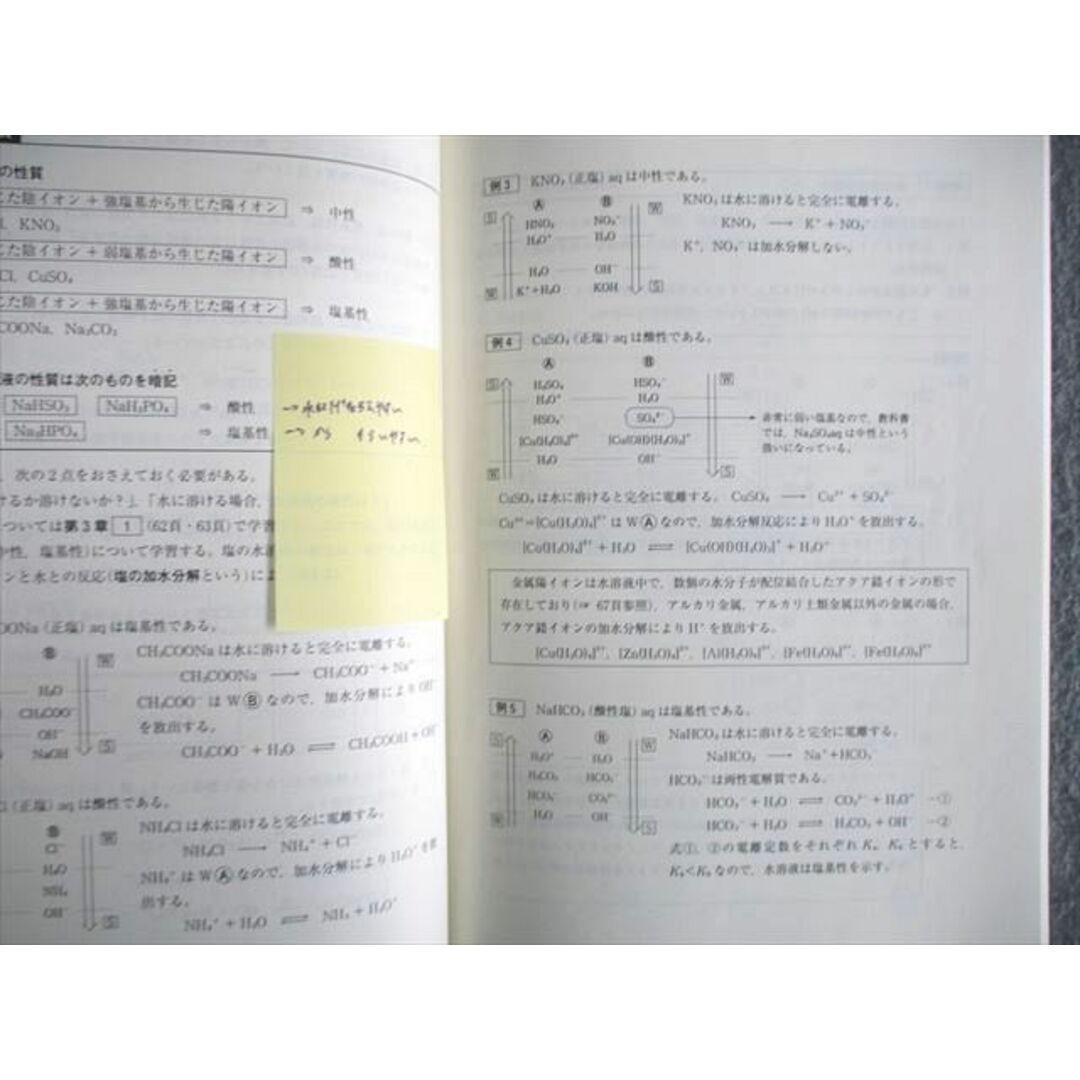 の性質
じた陰イオン + 強塩基から生じた陽イオン ⇒ 中性
l, KNO₃
じた陰イオン + 弱塩基から生じた陽イオン ⇒ 酸性
Cl, CuSO₄
じた陰イオン + 強塩基から生じた陽イオン ⇒ 塩基性
COONa, Na₂CO₃
液の性質は次のものを暗記
NaHSO₃ NaH₂PO₄ ⇒ 酸性
Na₂HPO₄ ⇒ 塩基性
次の2点をおさえておく必要がある。
けるか溶けないか?」「水に溶ける場合,
ついては第3章 1 (62頁・63頁)で学習
中性, 塩基性)について学習する。塩の水溶
ンと水との反応(塩の加水分解という)によ
OONa (正塩) aq は塩基性である。
Ⓑ W
H₂O
CH₃COO⁻
OH⁻
NaOH S
CH₃COONa は水に溶けると完全に電離する。
CH₃COONa → CH₃COO⁻ + Na⁺
CH₃COO⁻ は W Ⓑ なので, 加水分解により OH⁻
を放出する。
CH₃COO⁻ + H₂O ⇌ CH₃COOH + OH⁻
Cl (正塩) aq は酸性である。
Ⓑ W
Cl⁻
H₂O
NH₃
OH⁻ S
NH₄Cl は水に溶けると完全に電離する。
NH₄Cl → NH₄⁺ + Cl⁻
NH₄⁺ は W Ⓐ なので, 加水分解により H₃O⁺ を放
出する。
NH₄⁺ + H₂O ⇌ NH₃ + H₃O⁺
例3 KNO₃ (正塩) aq は中性である。
Ⓐ Ⓑ
S HNO₃ NO₃⁻ W
H₃O⁺ H₂O
H₂O OH⁻
W K⁺+H₂O KOH S
KNO₃ は水に溶けると完全に電離する。
KNO₃ → K⁺ + NO₃⁻
K⁺, NO₃⁻ は加水分解しない。
例4 CuSO₄ (正塩) aq は酸性である。
Ⓐ Ⓑ
S H₂SO₄ HSO₄⁻ W
H₃O⁺ H₂O
HSO₄⁻ SO₄²⁻
[Cu(H₂O)₄]²⁺ [Cu(OH)(H₂O)₃]⁺
W H₂O OH⁻ S
非常に弱い塩基なので, 教科書
では, Na₂SO₄aq は中性という
扱いになっている。
CuSO₄ は水に溶けると完全に電離する。 CuSO₄ → Cu²⁺ + SO₄²⁻
Cu²⁺=[Cu(H₂O)₄]²⁺ は W Ⓐ なので, 加水分解反応により H₃O⁺ を放出する。
[Cu(H₂O)₄]²⁺ + H₂O ⇌ [Cu(OH)(H₂O)₃]⁺ + H₃O⁺
金属陽イオンは水溶液中で, 数個の水分子が配位結合したアクア錯イオンの形で
存在しており(☞ 67頁参照), アルカリ金属, アルカリ土類金属以外の金属の場合,
アクア錯イオンの加水分解により H⁺ を放出する。
[Cu(H₂O)₄]²⁺, [Zn(H₂O)₄]²⁺, [Al(H₂O)₆]³⁺, [Fe(H₂O)₆]²⁺, [Fe(H₂O)₆]³⁺
例5 NaHCO₃ (酸性塩) aq は塩基性である。
Ⓐ Ⓑ
S H₃O⁺ H₂O W
H₂CO₃ HCO₃⁻
HCO₃⁻ CO₃²⁻
W H₂O OH⁻ S
NaHCO₃ は水に溶けると完全に電離する。
NaHCO₃ → Na⁺+HCO₃⁻
HCO₃⁻ は両性電解質である。
HCO₃⁻ + H₂O ⇌ CO₃²⁻ + H₃O⁺ …①
HCO₃⁻ + H₂O ⇌ H₂CO₃ + OH⁻ …②
式①, ②の電離定数をそれぞれ Kₐ, K_b とすると,
Kₐ<K_b なので, 水溶液は塩基性を示す。